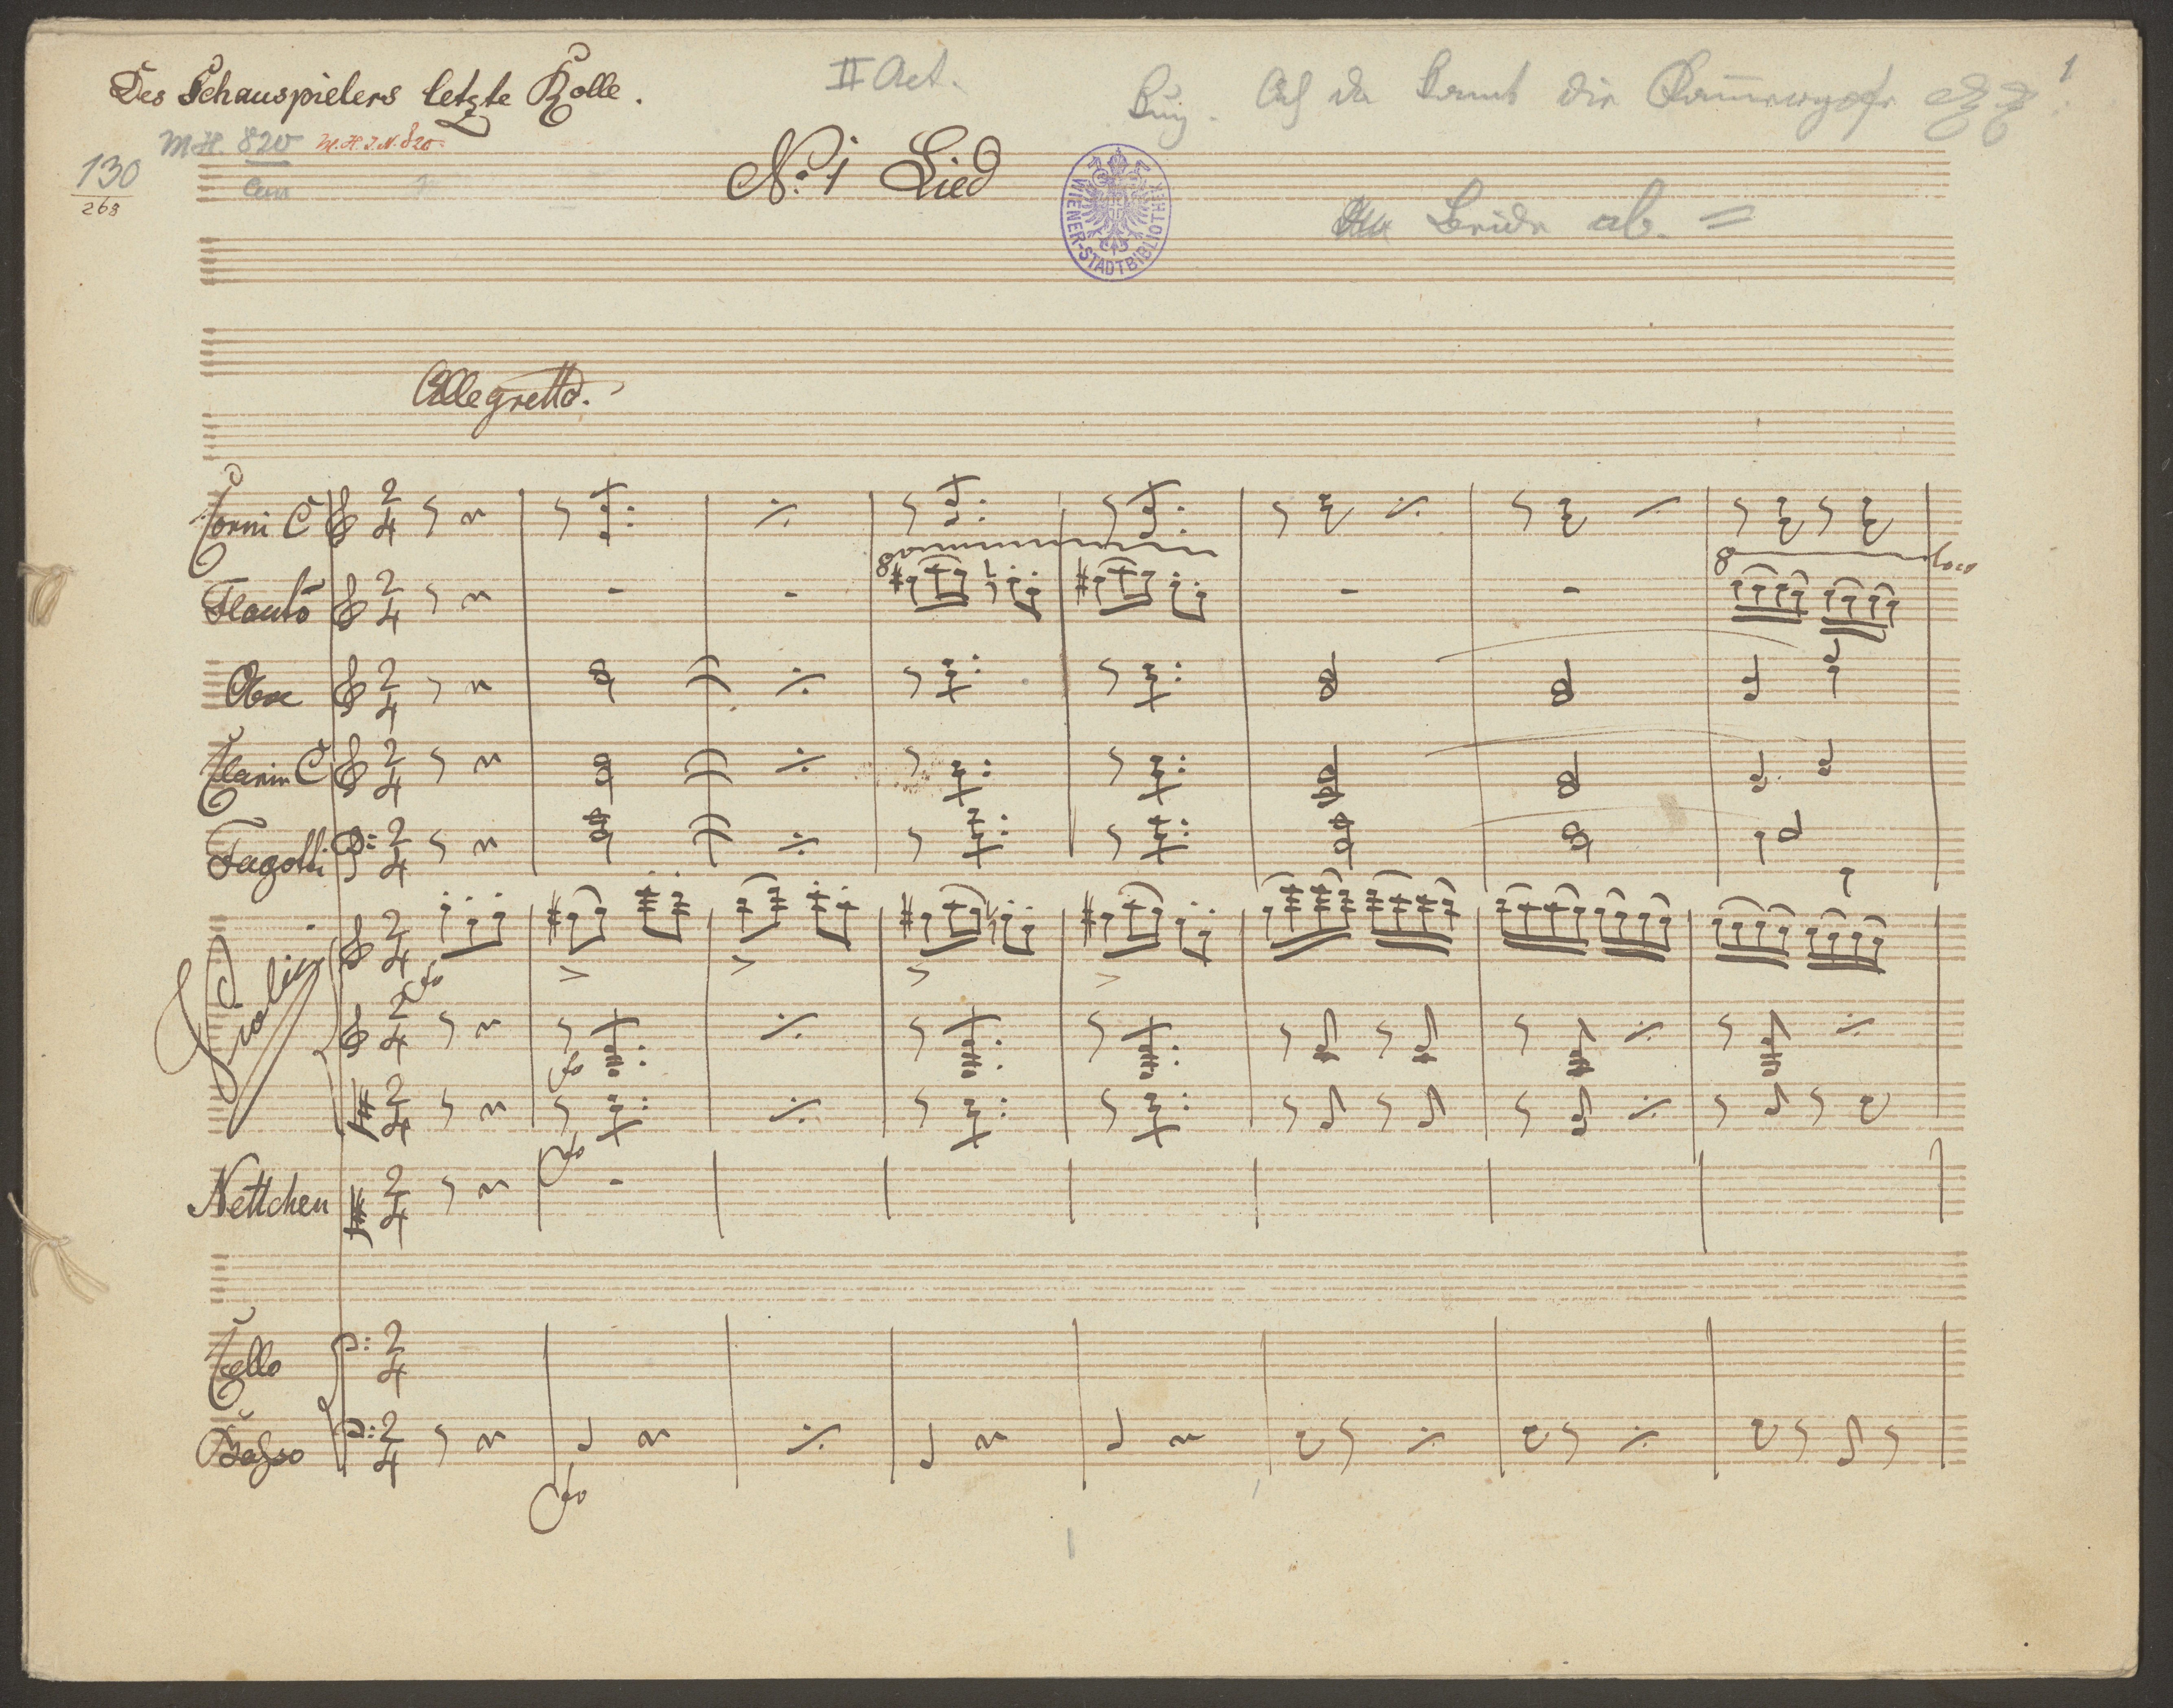 Des Schauspielers letzte Rolle.
II Act.
1
M.H. 820
M.H.I.N. 820
130
268
No. 1 Lied
WIENER-STADTBIBLIOTHEK
Beide ab.
Allegretto.
Corni C
8
loco
Flauto
8
Oboe
Clarin C
Fagotti
Violini
fo
fo
fo
Nettchen
Cello
Basso
fo